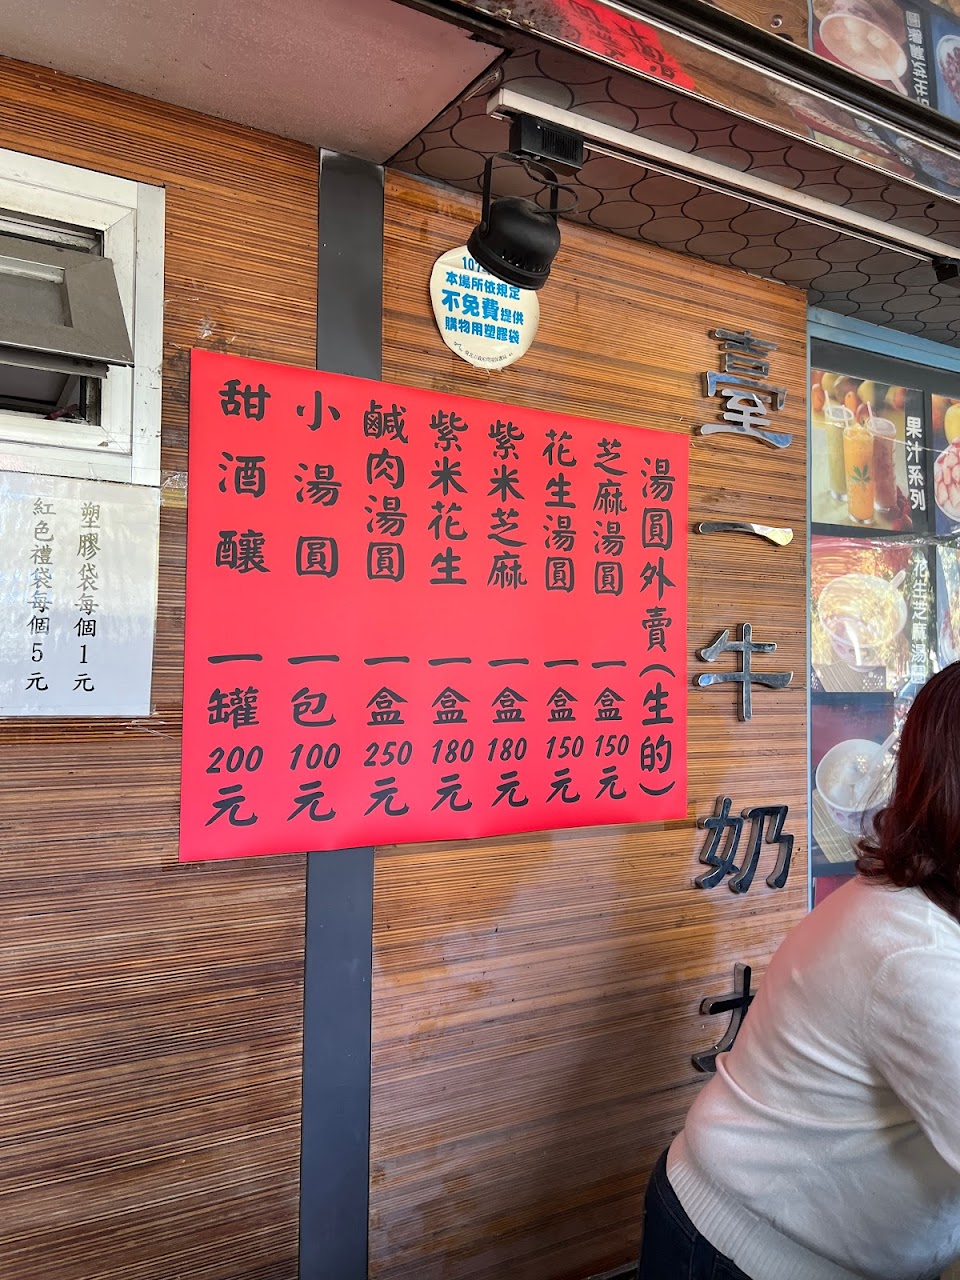 湯圓外賣(生的)
芝麻湯圓 一盒150元
花生湯圓 一盒150元
紫米芝麻 一盒180元
紫米花生 一盒180元
鹹肉湯圓 一盒250元
小湯圓 一包100元
甜酒釀 一罐200元
塑膠袋每個1元
紅色禮袋每個5元
本場所依規定
不免費提供
購物用塑膠袋
臺一牛奶大
果汁系列
花生芝麻湯圓